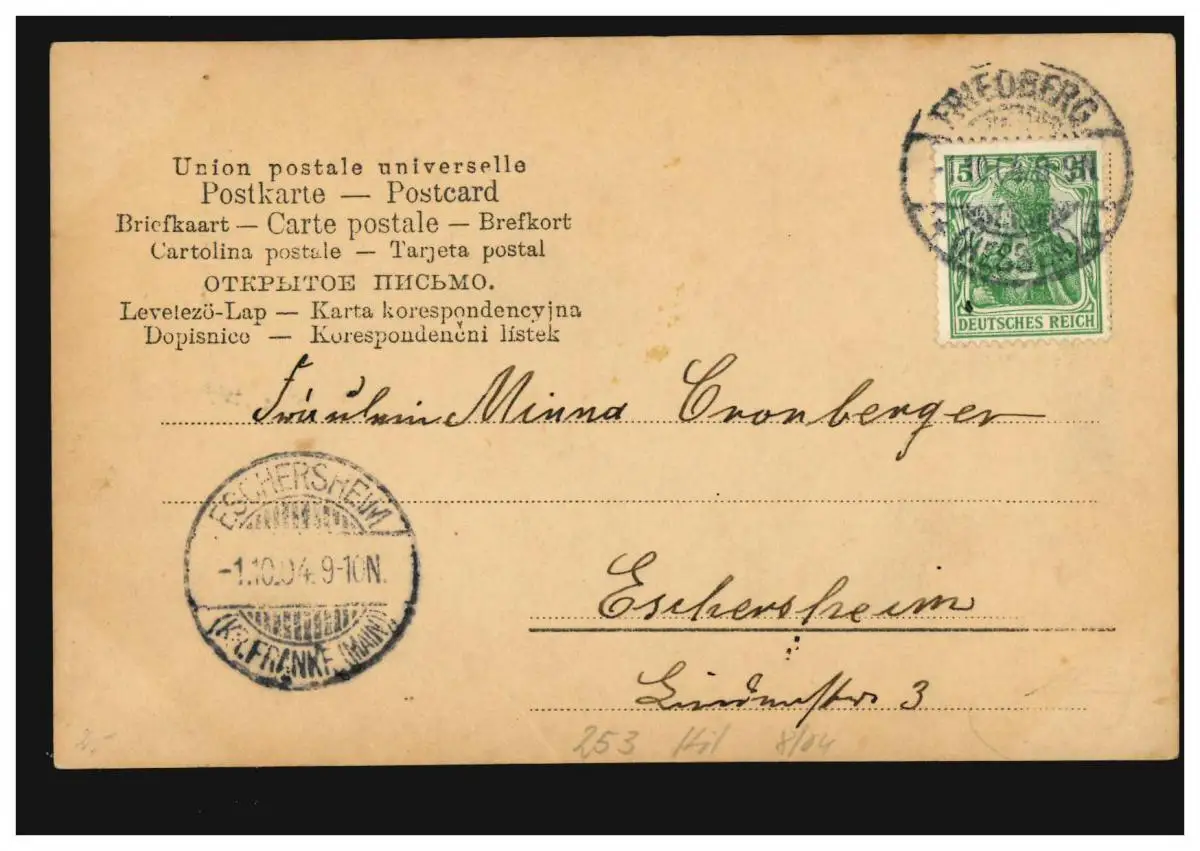 Union postale universelle
Postkarte — Postcard
Briefkaart — Carte postale — Brefkort
Cartolina postale — Tarjeta postal
ОТКРЫТОЕ ПИСЬМО.
Levelező-Lap — Karta korespondencyjna
Dopisnice — Korespondenčni listek
FRIEDBERG
5
DEUTSCHES REICH
Fräulein Minna Cronberger
ESCHERSHEIM
-1.10.04. 9-10N.
(KR. FRANKF. (MAIN)
Eschersheim
Lindenstr. 3
2,-
253 8/04